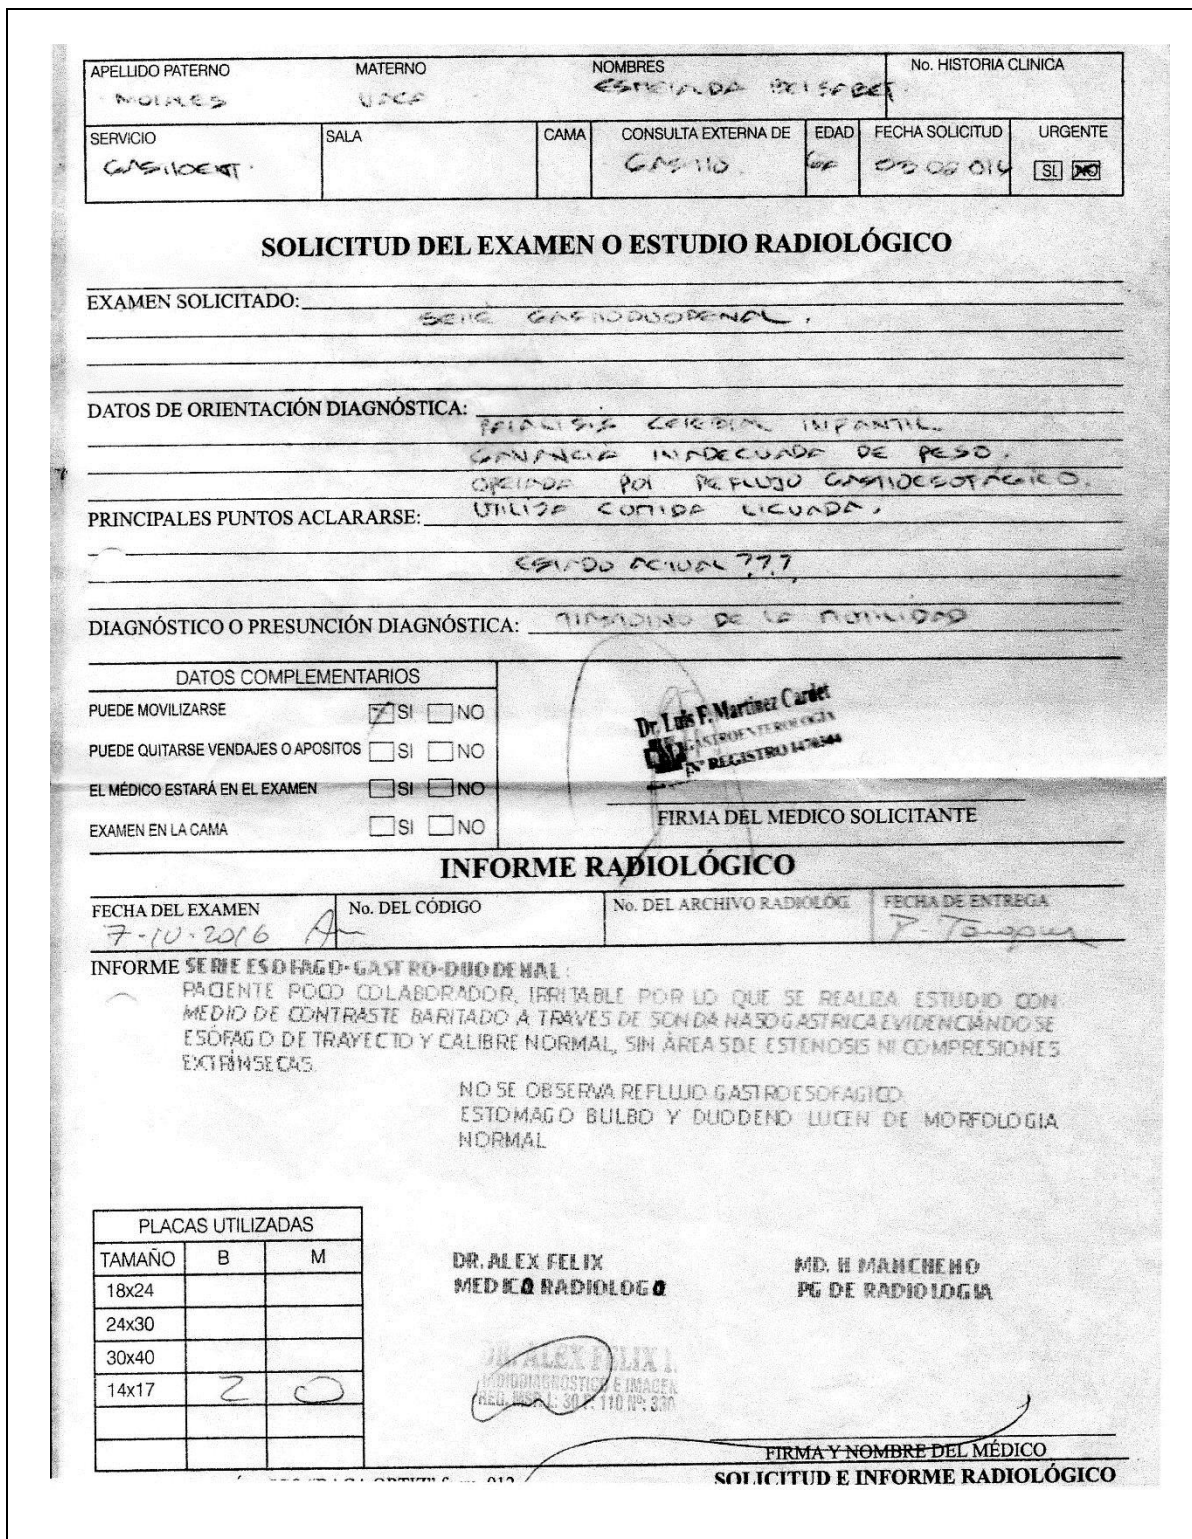 APELLIDO PATERNO MATERNO NOMBRES No. HISTORIA CLINICA
MORALES VACA ESMERALDA
SERVICIO SALA CAMA CONSULTA EXTERNA DE EDAD FECHA SOLICITUD URGENTE
GASTRO SI NO
SOLICITUD DEL EXAMEN O ESTUDIO RADIOLÓGICO
EXAMEN SOLICITADO:
SERIE GASTRODUODENAL.
DATOS DE ORIENTACIÓN DIAGNÓSTICA:
PARALISIS CEREBRAL INFANTIL.
GANANCIA INADECUADA DE PESO.
OPERADA POR REFLUJO GASTROESOFAGICO.
PRINCIPALES PUNTOS ACLARARSE: UTILIZA COMIDA LICUADA.
ESTADO ACTUAL ???
DIAGNÓSTICO O PRESUNCIÓN DIAGNÓSTICA: DE LA MOTILIDAD
DATOS COMPLEMENTARIOS
PUEDE MOVILIZARSE SI NO
PUEDE QUITARSE VENDAJES O APOSITOS SI NO
EL MÉDICO ESTARÁ EN EL EXAMEN SI NO
EXAMEN EN LA CAMA SI NO
Dr. Luis F. Martinez Cardet
GASTROENTEROLOGIA
Nº REGISTRO
FIRMA DEL MEDICO SOLICITANTE
INFORME RADIOLÓGICO
FECHA DEL EXAMEN No. DEL CÓDIGO No. DEL ARCHIVO RADIOLOG. FECHA DE ENTREGA
7-10-2016
INFORME SERIE ESOFAGO-GASTRO-DUODENAL:
PACIENTE POCO COLABORADOR, IRRITABLE POR LO QUE SE REALIZA ESTUDIO CON
MEDIO DE CONTRASTE BARITADO A TRAVES DE SONDA NASOGASTRICA EVIDENCIÁNDOSE
ESÓFAGO DE TRAYECTO Y CALIBRE NORMAL, SIN ÁREAS DE ESTENOSIS NI COMPRESIONES
EXTRÍNSECAS.
NO SE OBSERVA REFLUJO GASTROESOFAGICO.
ESTOMAGO BULBO Y DUODENO LUCEN DE MORFOLOGIA
NORMAL
PLACAS UTILIZADAS
TAMAÑO B M
18x24
24x30
30x40
14x17 2 0
DR. ALEX FELIX
MEDICO RADIOLOGO
MD. H MANCHENO
PG DE RADIOLOGIA
DR. ALEX FELIX I.
RADIODIAGNOSTICO E IMAGEN
FIRMA Y NOMBRE DEL MÉDICO
SOLICITUD E INFORME RADIOLÓGICO